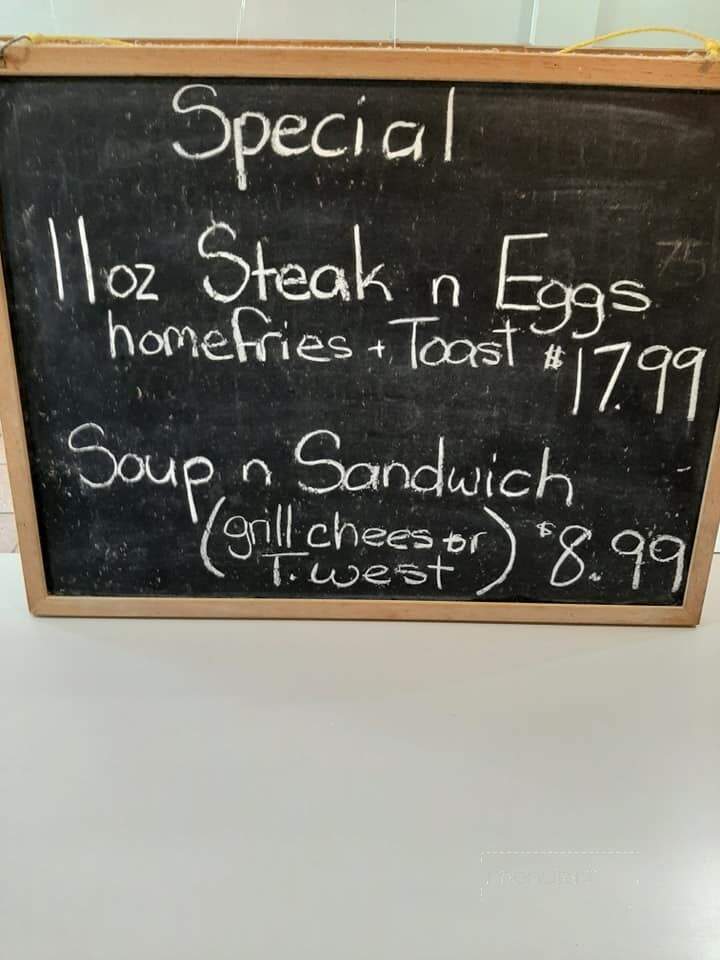 Special
11oz Steak n Eggs
homefries + Toast $17.99
Soup n Sandwich
(grill chees or
T. west) $8.99